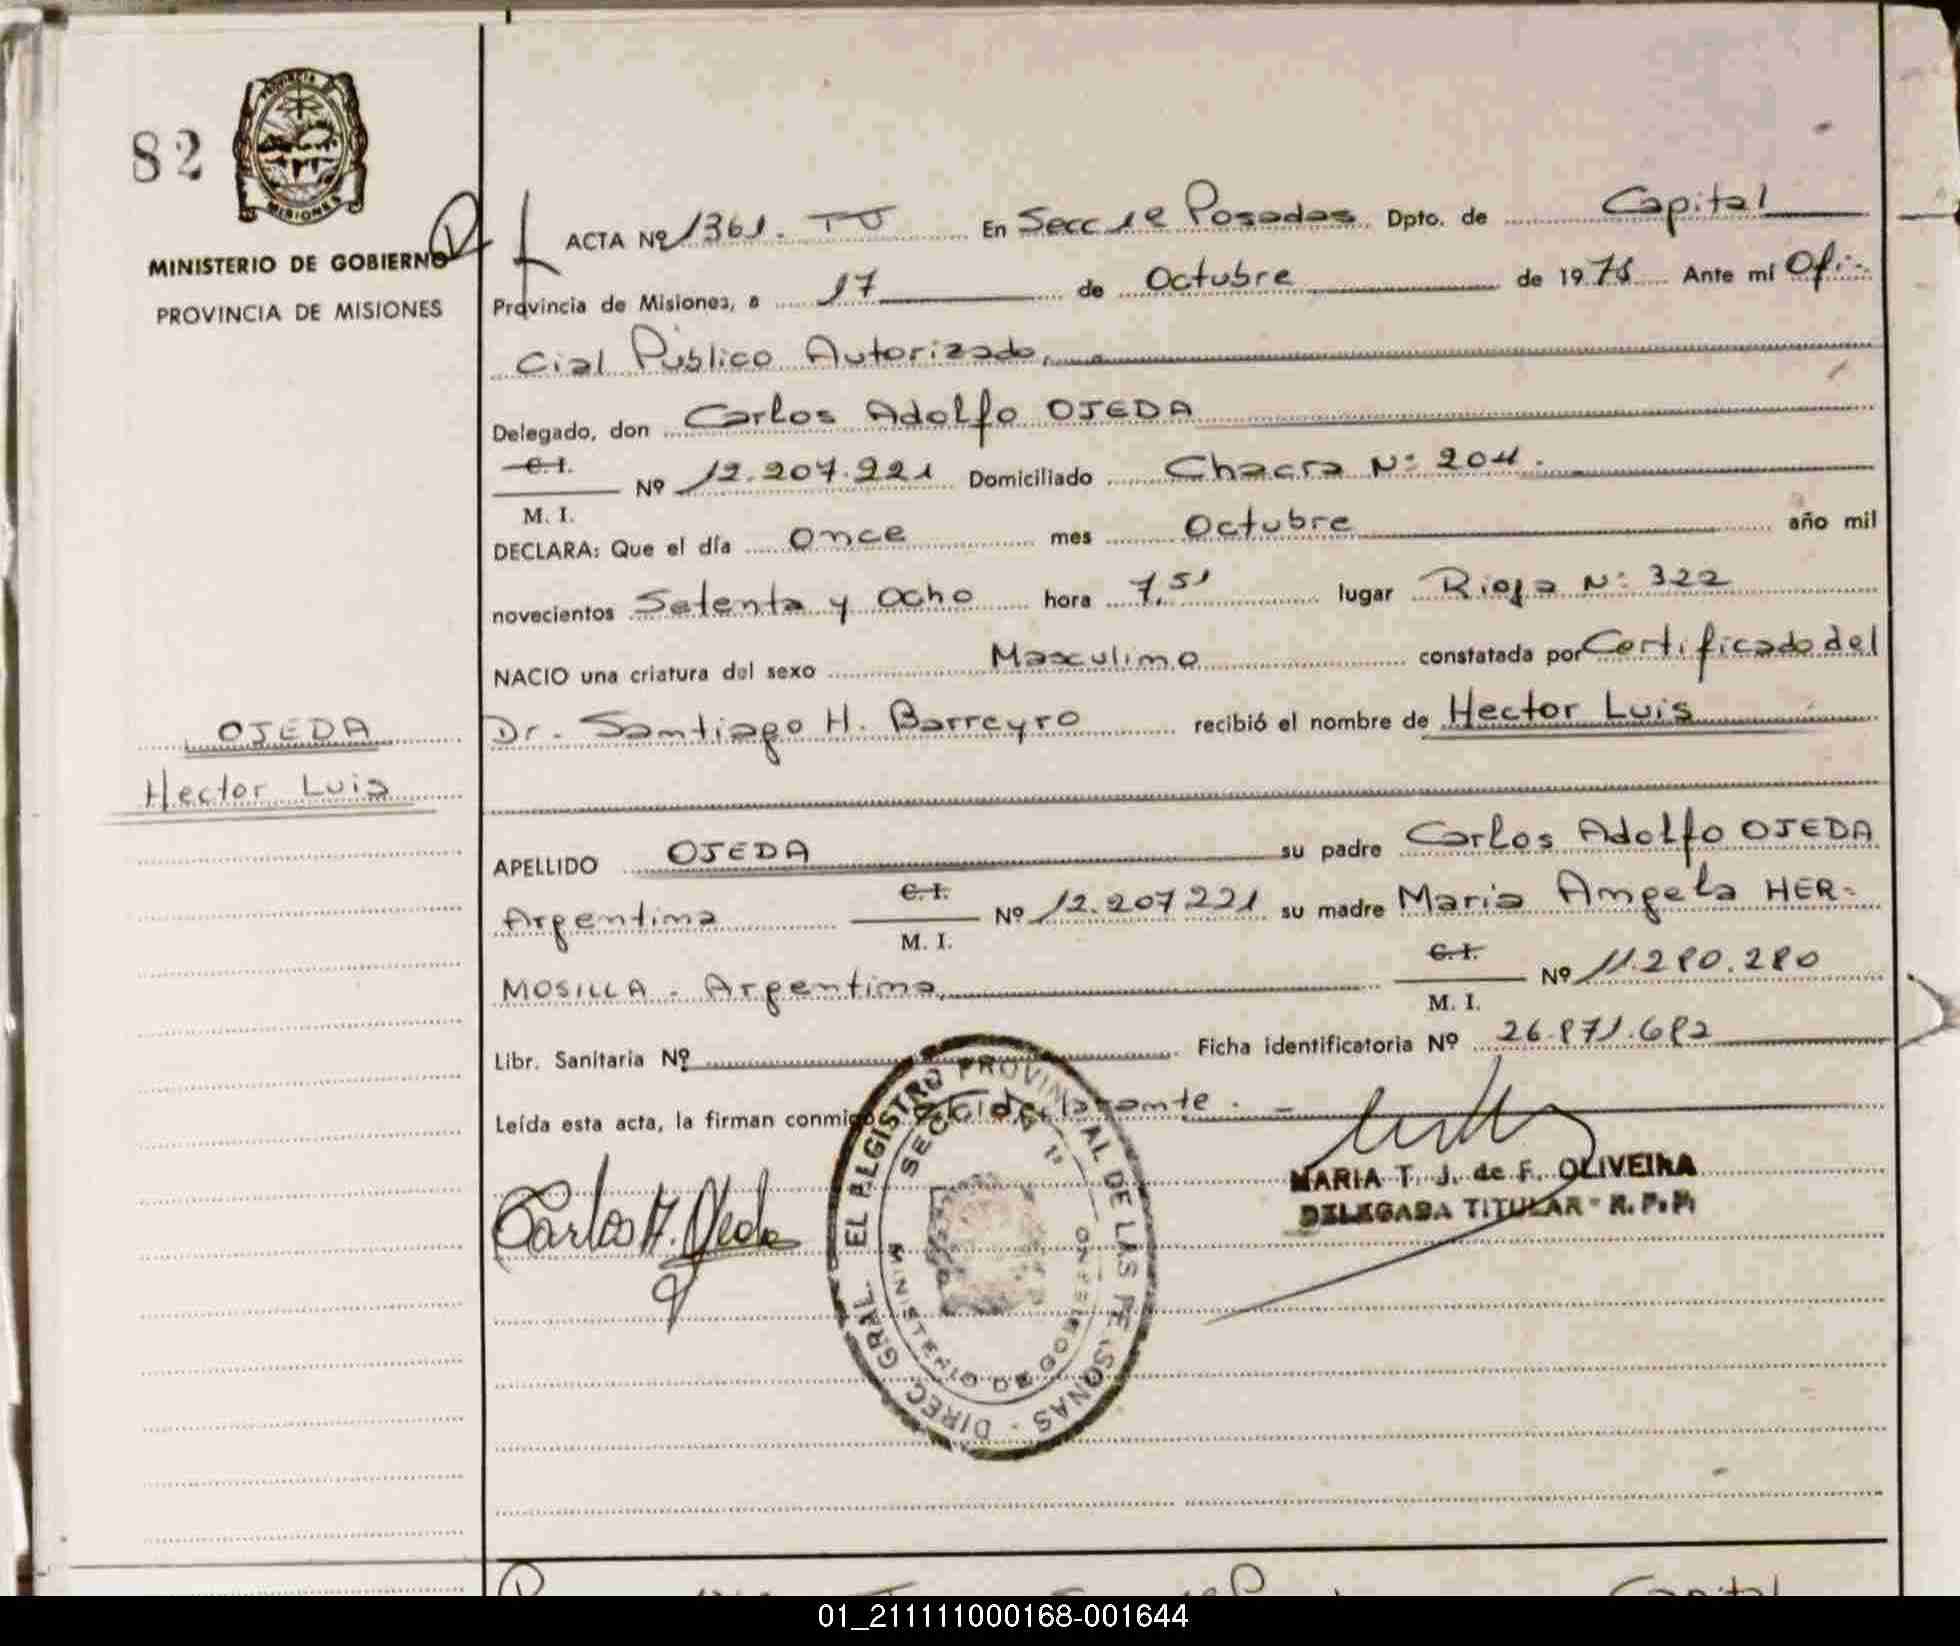 82
PROVINCIA D
MISIONES
MINISTERIO DE GOBIERNO
PROVINCIA DE MISIONES
ACTA Nº 1361. TJ En Secc 1ª Posadas Dpto. de Capital
Provincia de Misiones, a 17 de Octubre de 1978 Ante mí Ofi-
cial Público Autorizado,
Delegado, don Carlos Adolfo OJEDA
C.I. M. I. Nº 12.207.221 Domiciliado Chacra Nº 204.
DECLARA: Que el día once mes Octubre año mil
novecientos Setenta y ocho hora 7,51 lugar Rioja Nº 322
NACIO una criatura del sexo Masculino constatada por Certificado del
Dr. Santiago H. Barreyro recibió el nombre de Hector Luis
OJEDA
Hector Luis
APELLIDO OJEDA su padre Carlos Adolfo OJEDA
Argentina C.I. M. I. Nº 12.207.221 su madre Maria Angela HER-
MOSILLA - Argentina, C.I. M. I. Nº 11.280.280
Libr. Sanitaria Nº Ficha identificatoria Nº 26.871.682
Leída esta acta, la firman conmigo el declarante. -
Carlos A. Ojeda
MARIA T. J. de F. OLIVEIRA
DELEGADA TITULAR - R.P.P.
DIREC. GRAL. EL REGISTRO PROVINCIAL DE LAS PERSONAS
SECCION 1ª
MINISTERIO DE GOBIERNO
Capital
01_211111000168-001644